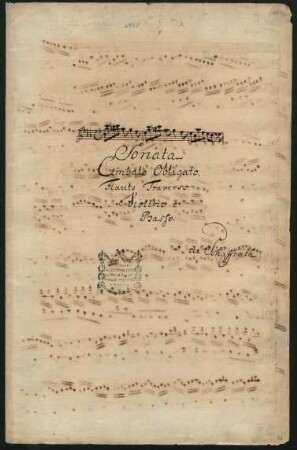 Sonata
Cembalo Obligato.
Flauto Traverso
Violino è
Basso.
di Schaffrath